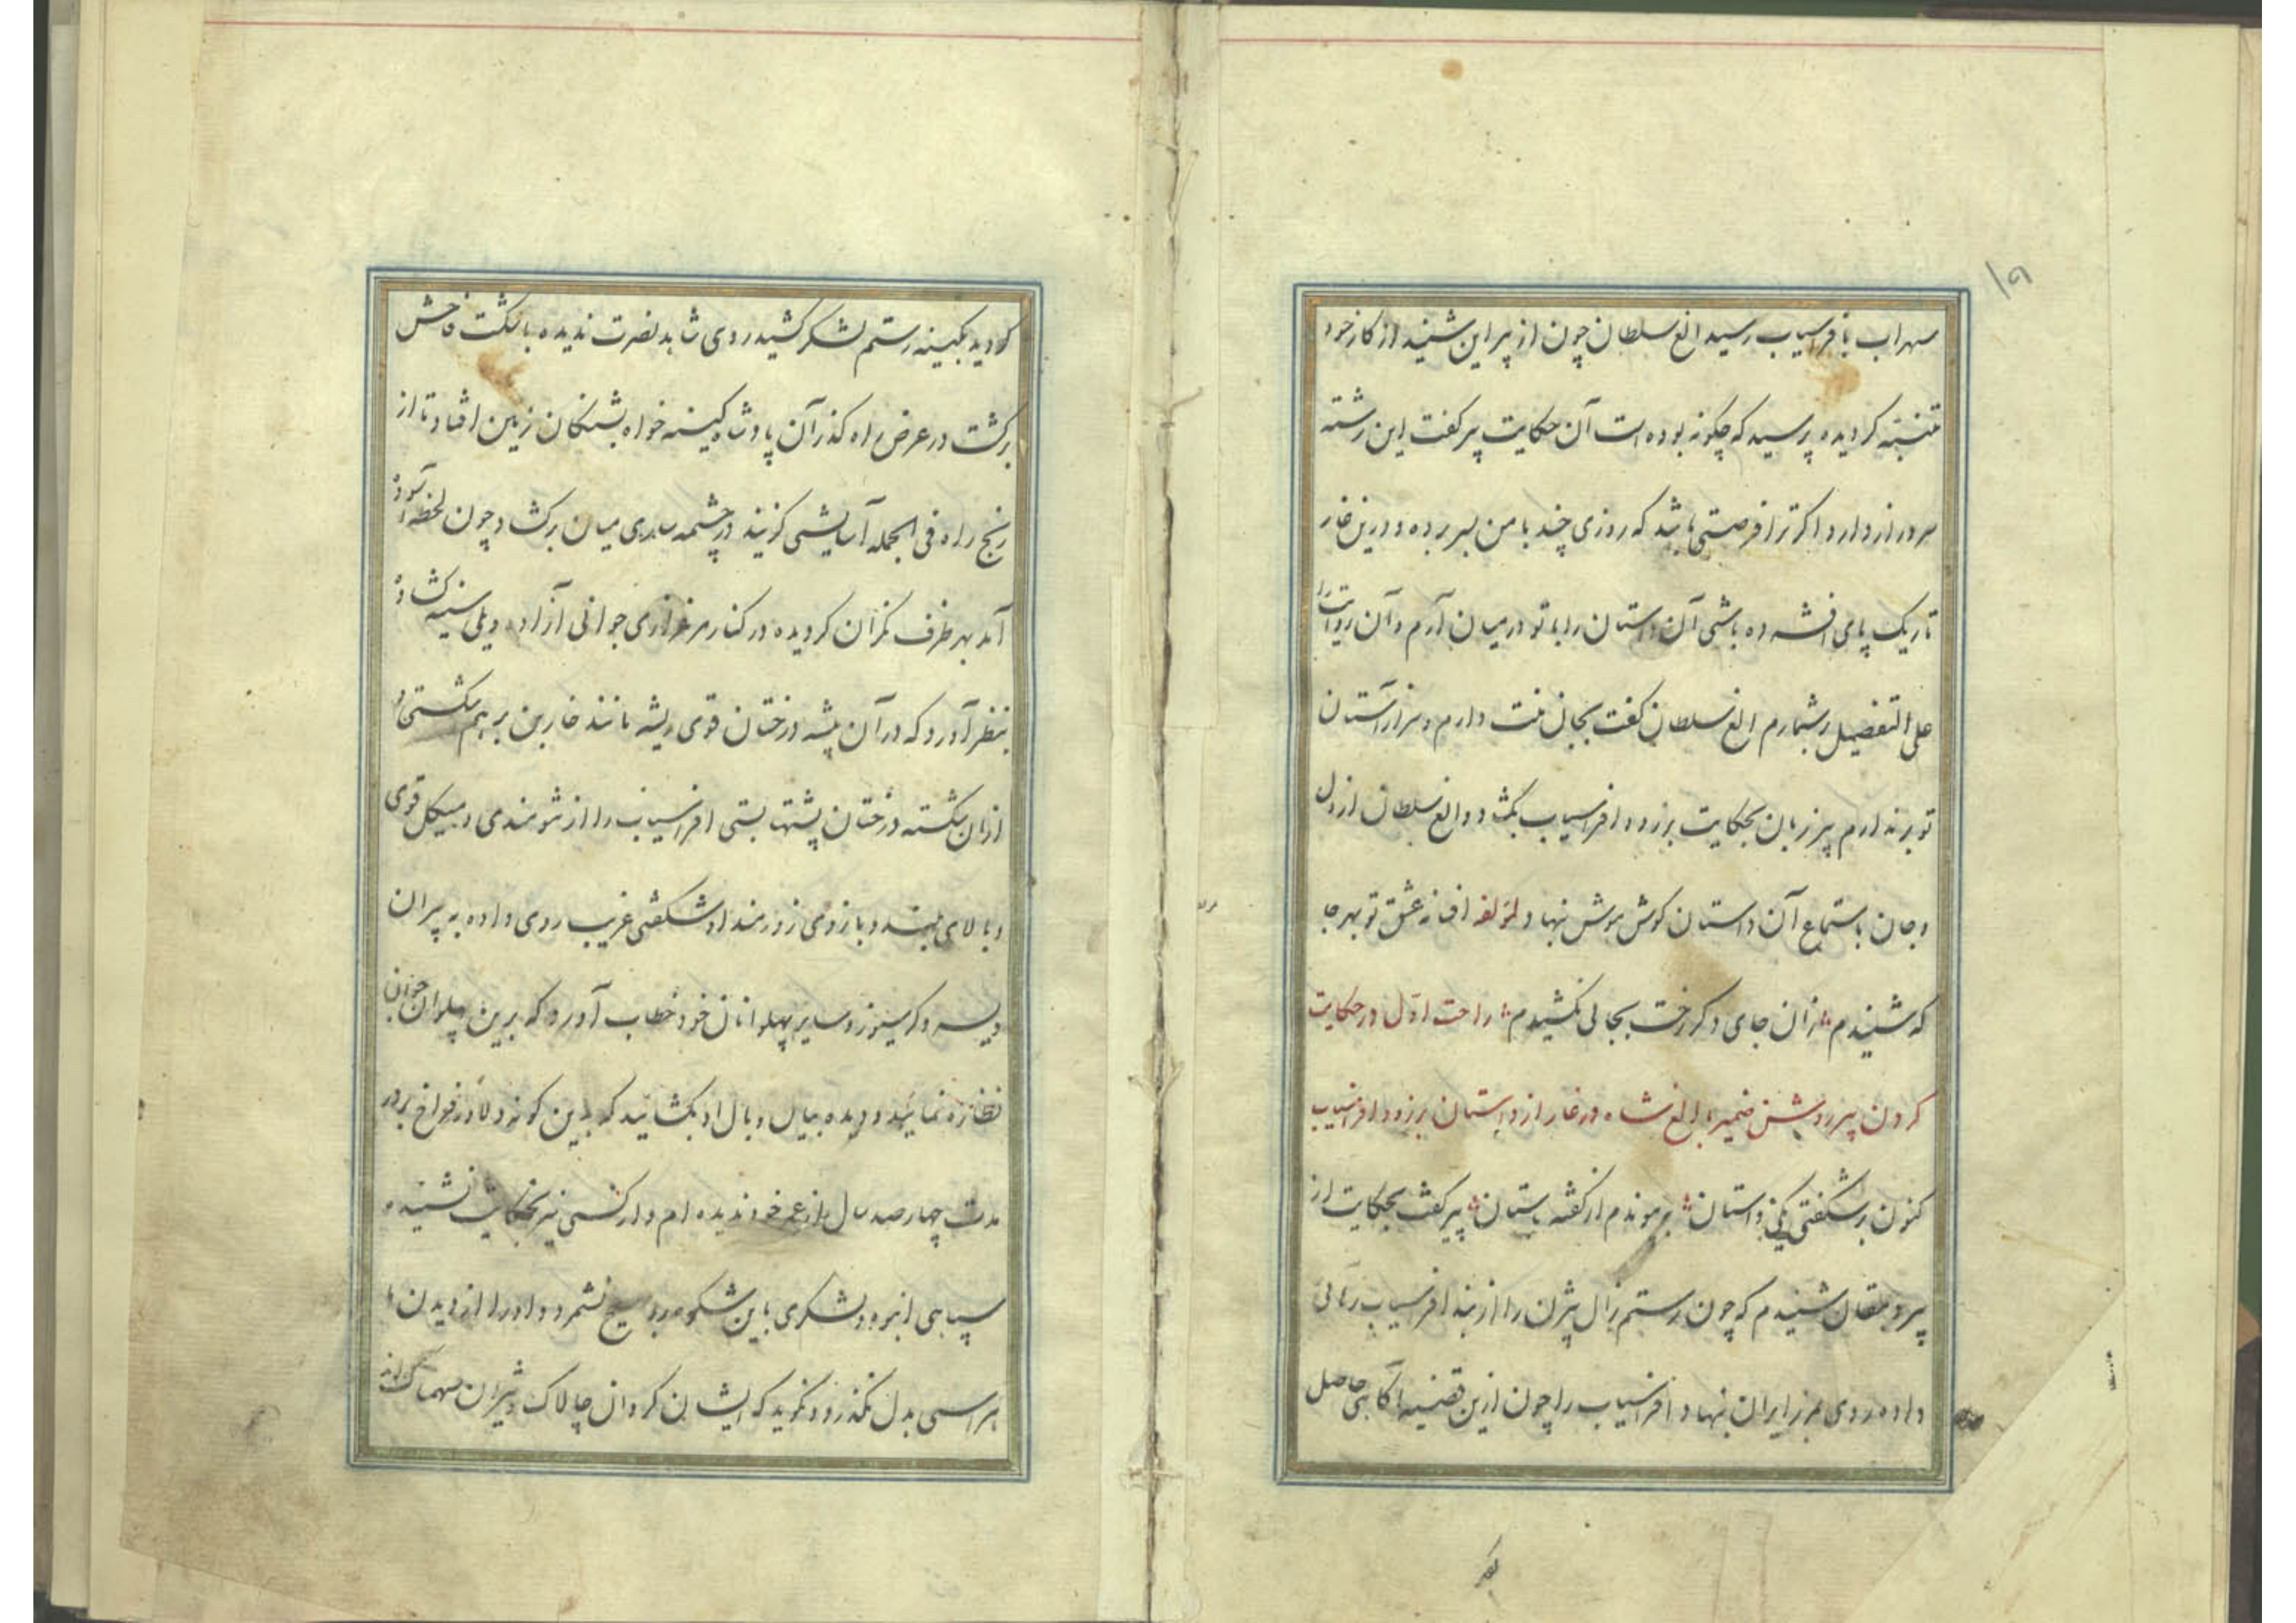 ۱۹
سهراب بافراسیاب رسید الغ سلطان چون از پیر این شنید از کار خود
متنبه کردیده پرسید که چکونه بوده است آن حکایت پیر کفت این رشته
سر دراز دارد اکر ترا فرصتی باشد که روزی چند با من بسر برده و درین غار
تاریک پای افشرده باشی آن داستان را با تو در میان آرم و آن روایت را
علی التفصیل بر شمارم الغ سلطان کفت بجان منت دارم و سر از آستان
تو بر ندارم پیر زبان بحکایت برزو و افراسیاب بکشاد و الغ سلطان از دل
و جان باستماع آن داستان کوش هوش نهاد لمؤلفه افسانه عشق تو بهر جا
که شنیدم زان جای دکر رخت بجائی نکشیدم راحت اول در حکایت
کردن پیر روشن ضمیر با الغ شاه در غار از داستان برزو و افراسیاب
کنون بر شکفتی یکی داستان بپیوندم از کفته باستان پیر کفت بحکایت از
پیر دهقان شنیدم که چون رستم زال بیژن را از بند افراسیاب رهائی
داده روی بمرز ایران نهاد و افراسیاب را چون ازین قضیه آکاهی حاصل
کردید بکینه رستم لشکر کشید روی شاهد نصرت ندیده با شکست فاحش
برکشت در عرض راه کذر آن پادشاه کینه خواه بشنکان زمین افتاد تا از
رنج راه فی الجمله آسایشی کزیند در چشمه ساری میان برکشاد چون لحظه آسوده
آمد بهر طرف نکران کردیده در کنار مرغزاری جوانی آزاده و یلی سینه کشاده
بنظر آورد که در آن بیشه درختان قوی ریشه مانند خاربن بر هم شکستی و
ازان شکسته درختان پشتها بستی افراسیاب را از تنومندی و هیکل قوی
و بالای بلند و بازوی زورمند او شکفتی غریب روی داده به پیران
ویسه و کرسیوز و سایر پهلوانان خود خطاب آورد که برین پهلوان جوان
نظاره نمائید و دیده بیال و بال او بکشائید که بدین کونه دلاور فراخ بر در
مدت چهار صد سال از عمر خود ندیده ام و از کسی نیز بحکایت نشنیده
سپاهی انبوه و لشکری باین شکوه را هیچ نشمرد و او را از دیدن ما
هراسی بدل نکذرد و نکوید که ایشان کردان چالاک و شیران سهمناک اند